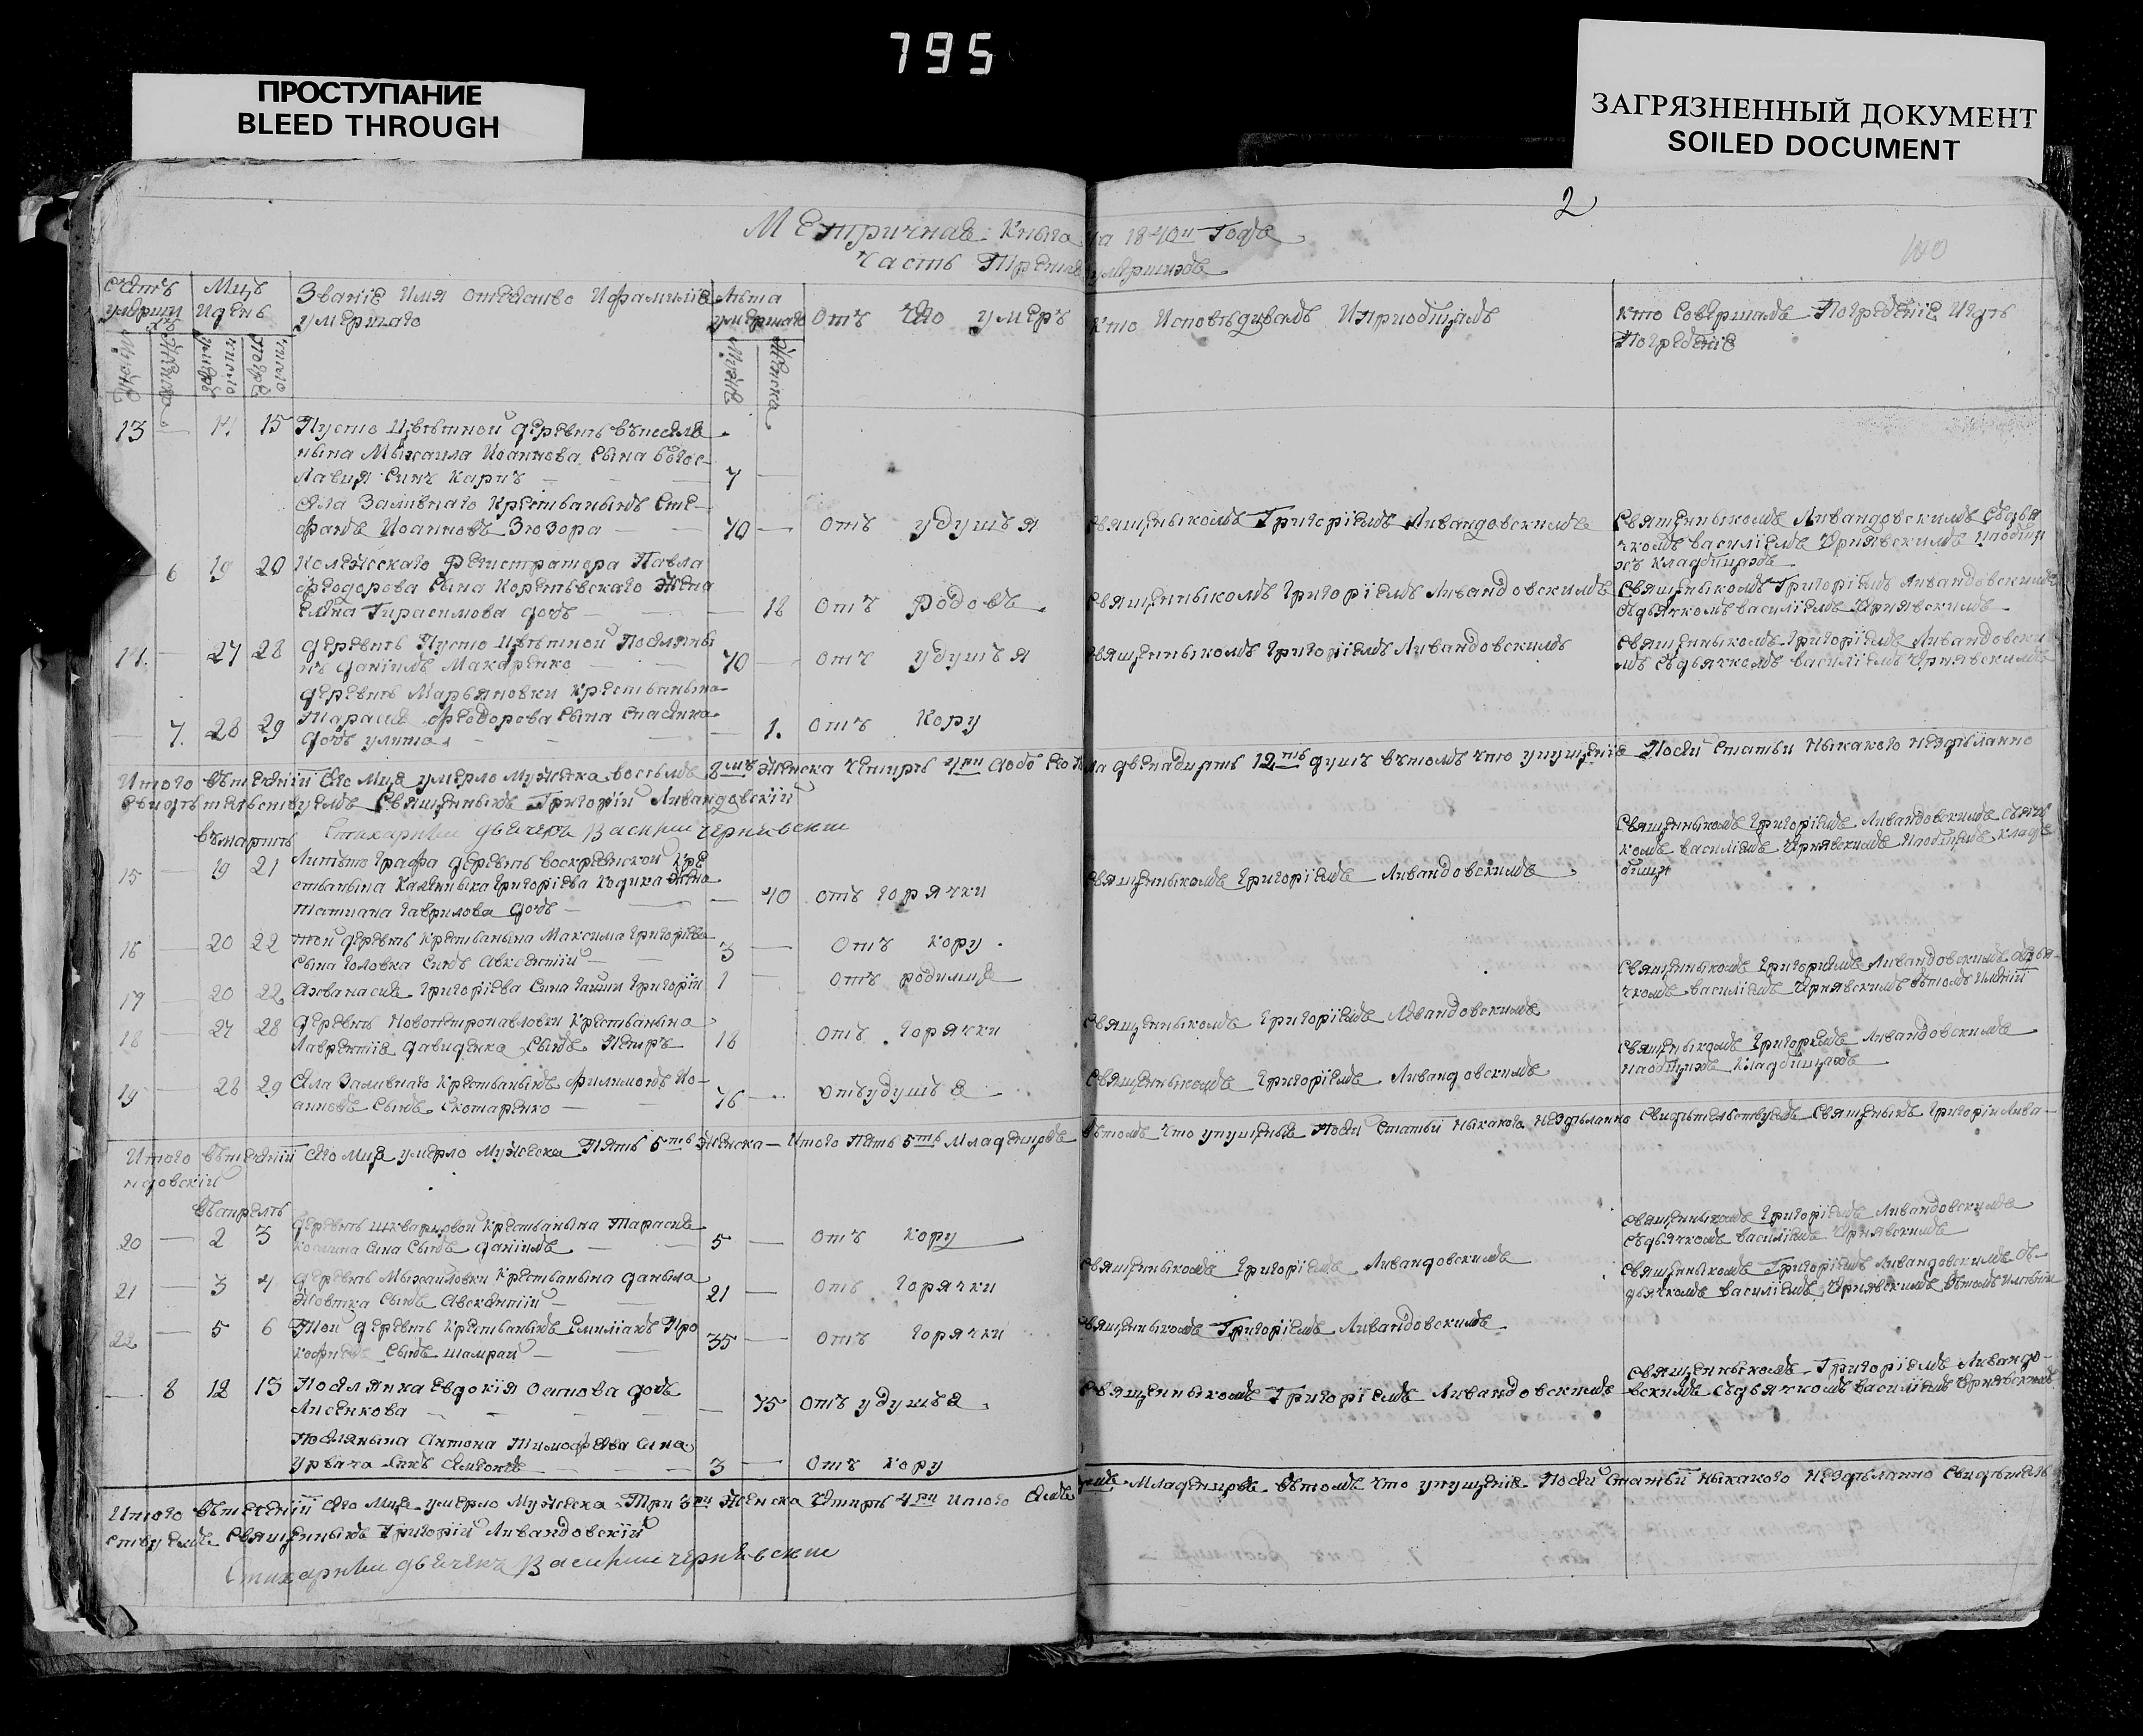 795
ПРОСТУПАНИЕ
BLEED THROUGH
ЗАГРЯЗНЕННЫЙ ДОКУМЕНТ
SOILED DOCUMENT
2
Метричная Книга на 1840й Годъ
Часть Третія умершихъ
Счетъ умершихъ
Мцъ и день
Званіе Имя Отечество И фамиліе умершаго
Лѣта умершаго
Отъ чего умеръ
Кто Исповѣдивалъ И приобщалъ
Кто Совершалъ Погребеніе И гдѣ Погребенъ
13 — 14 15 Пусто Цвѣтной деревнѣ
Михаила Иоаннова Сына
Синъ Карпъ — 7 —
Села Заливнаго Крестьянинъ Сте-
фанъ Иоанновъ Зюзюра — 70 — Отъ удушья Священникомъ Григоріемъ Ливандовскимъ Священникомъ Ливандовскимъ Съ дья
чкомъ Василіемъ Чернявскимъ
кладбищахъ
— 6 19 20 Колежскаго Регистратора Павла
Феодорова Сына Корытьвскаго Жена
Елена Гирасимова дочь — 18 Отъ Родовъ Священникомъ Григоріемъ Ливандовскимъ Священникомъ Григоріемъ Ливандовскимъ
Съ дьячкомъ Василіемъ Чернявскимъ
14. — 27 28 деревнѣ Пусто Цвѣтной Поселяни
нъ Даніилъ Макаренко 70 — Отъ удушья Священникомъ Григоріемъ Ливандовскимъ Священникомъ Григоріемъ Ливандовски
мъ Съ дьячкомъ Василіемъ Чернявскимъ
деревнѣ Марьяновки Крестьянина
— 7. 28 29 Тарасія Феодорова Сына
дочь улита — 1. Отъ Кору
Итого Въ теченіи Сего Мця умерло Мужеска восемь 8мъ Женска Четыре 4ри Обоего Пола двенадцать 12ть душъ Въ томъ что упущеніе По сей Статьи Никакого Нездѣланно
Свидѣтельствуемъ Священникъ Григорій Ливандовскій
Стихарный дьячекъ Василій Чернявскій
Въ мартѣ
15 — 19 21 графа деревнѣ Воскресенской Кре
стьянина Калинника Григоріева Кодика Жена
Татиана Гаврилова дочь — 40 Отъ Горячки Священникомъ Григоріемъ Ливандовскимъ Священникомъ Григоріемъ Ливандовскимъ Съ дьяч
комъ Василіемъ Чернявскимъ На общемъ Клад
бищи
16 — 20 22 той деревнѣ Крестьянина Максима Григоріева
Сына Головка Синъ Авксентій — 3 — Отъ Кору.
17 — 20 22 Афанасія Григоріева Сина Григорій 1 Отъ родимца Священникомъ Григоріемъ Ливандовскимъ Съ дья-
чкомъ Василіемъ Чернявскимъ Въ томъ Имѣніи
18 — 27 28 деревнѣ Новопетропавловки Крестьянина
Лаврентія Давиденка Сынъ Петръ 18 Отъ Горячки Священникомъ Григоріемъ Ливандовскимъ Священникомъ Григоріемъ Ливандовскимъ
На общихъ Кладбищахъ
19 — 28 29 Села Заливнаго Крестьянинъ Филимонъ Ио-
анновъ Сынъ Скотаренко — 76 — Отъ удушья Священникомъ Григоріемъ Ливандовскимъ
Итого Въ теченіи Сего Мця умерло Мужеска Пять 5ть Женска — Итого Пять 5ть Младенцовъ Въ томъ что упущенія По сей Статьи Никакого Нездѣланно Свидѣтельствуемъ Священникъ Григорій Лива-
ндовскій
Въ апрелѣ
20 — 2 3 деревнѣ Шкварцовой Крестьянина Тарасія
Козмина Сина Сынъ Даніилъ — 5 — Отъ Кору Священникомъ Григоріемъ Ливандовскимъ
Съ дьячкомъ Василіемъ Чернявскимъ
21 — 3 4 деревнѣ Михайловки Крестьянина Данила
Жовтка Сынъ Авксентій — 21 — Отъ Горячки Священникомъ Григоріемъ Ливандовскимъ Священникомъ Григоріемъ Ливандовскимъ Съ-
дьячкомъ Василіемъ Чернявскимъ Въ томъ Имѣніи
22 — 5 6 Той деревнѣ Крестьянинъ Емиліанъ Про
кофіевъ Сынъ Шамрай — 35 — Отъ Горячки Священникомъ Григоріемъ Ливандовскимъ
— 8 12 13 Поселянка Евдокія Осипова дочь
Лисенкова — 75 Отъ удушья Священникомъ Григоріемъ Ливандовскимъ Священникомъ Григоріемъ Ливандо-
вскимъ Съ дьячкомъ Василіемъ Чернявскимъ
Поселянина Антона Тимофеева Сина
Синъ Симеонъ — 3 — Отъ Кору
Итого Въ теченіи Сего Мця умерло Мужеска Три 3ри Женска Четыре 4ри Итого Семь Младенцовъ Въ томъ что упущенія По сей Статьи Никакого Нездѣланно Свидѣтель
ствуемъ Священникъ Григорій Ливандовскій
Стихарный дьячекъ Василій Чернявскій